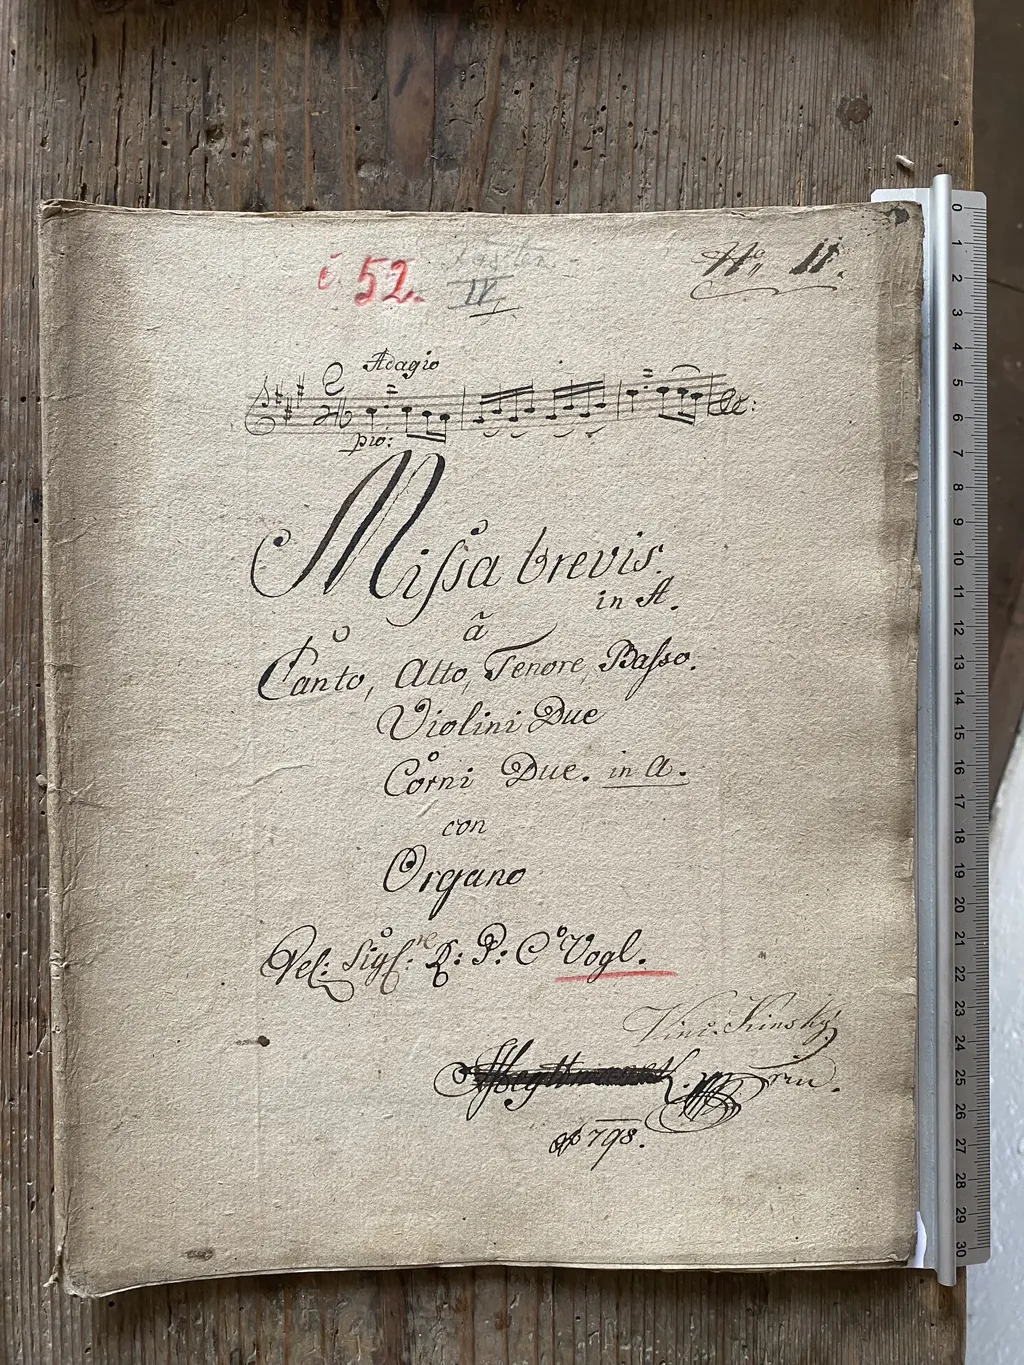 č. 52. Kasten
IV.
No. 11.
Adagio
pio:
&c:
Missa brevis.
in A.
ã
Canto, Alto, Tenore, Basso.
Violini Due
Corni Due. in A.
con
Organo
Del: Sigre: R: P: Co Vogl.
Vinc. Kinský
798.
0
1
2
3
4
5
6
7
8
9
10
11
12
13
14
15
16
17
18
19
20
21
22
23
24
25
26
27
28
29
30